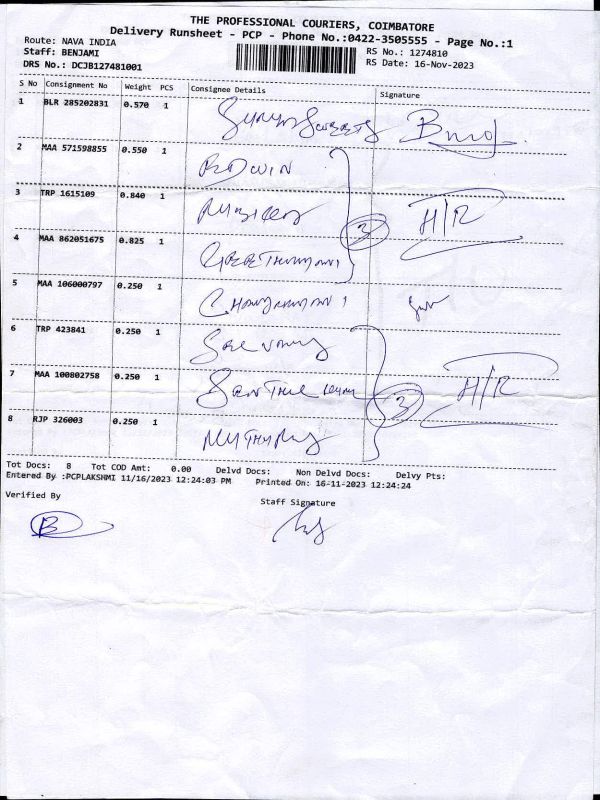 THE PROFESSIONAL COURIERS, COIMBATORE
Delivery Runsheet - PCP - Phone No.:0422-3505555 - Page No.:1
Route: NAVA INDIA
RS No.: 1274810
Staff: BENJAMI
RS Date: 16-Nov-2023
DRS No.: DCJB127481001
S No Consignment No Weight PCS Consignee Details Signature
1 BLR 285202831 0.570 1
2 MAA 571598855 0.550 1 EDWIN
3 TRP 1615109 0.840 1
3 H/R
4 MAA 862051675 0.825 1
5 MAA 106000797 0.250 1
6 TRP 423841 0.250 1
7 MAA 100802758 0.250 1
3 H/R
8 RJP 326003 0.250 1
Tot Docs: 8 Tot COD Amt: 0.00 Delvd Docs: Non Delvd Docs: Delvy Pts:
Entered By :PCPLAKSHMI 11/16/2023 12:24:03 PM Printed On: 16-11-2023 12:24:24
Verified By
Staff Signature
B